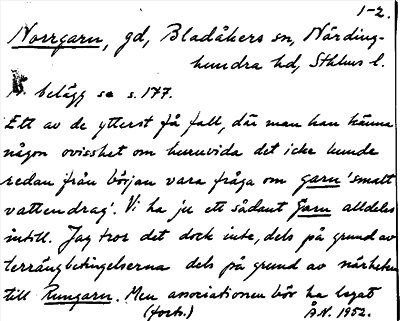 1-2.
Norrgarn, gd, Bladåkers sn, Närding-
hundra hd, Sthlms l.
Ä. belägg se s. 177.
Ett av de ytterst få fall, där man kan känna
någon ovisshet om huruvida det icke kunde
redan från början vara fråga om garn 'smalt
vattendrag'. Vi ha ju ett sådant Garn alldeles
intill. Jag tror det dock inte, dels på grund av
terrängbetingelserna dels på grund av närheten
till Rungarn. Men associationen bör ha legat
(forts.) Å.N. 1952.